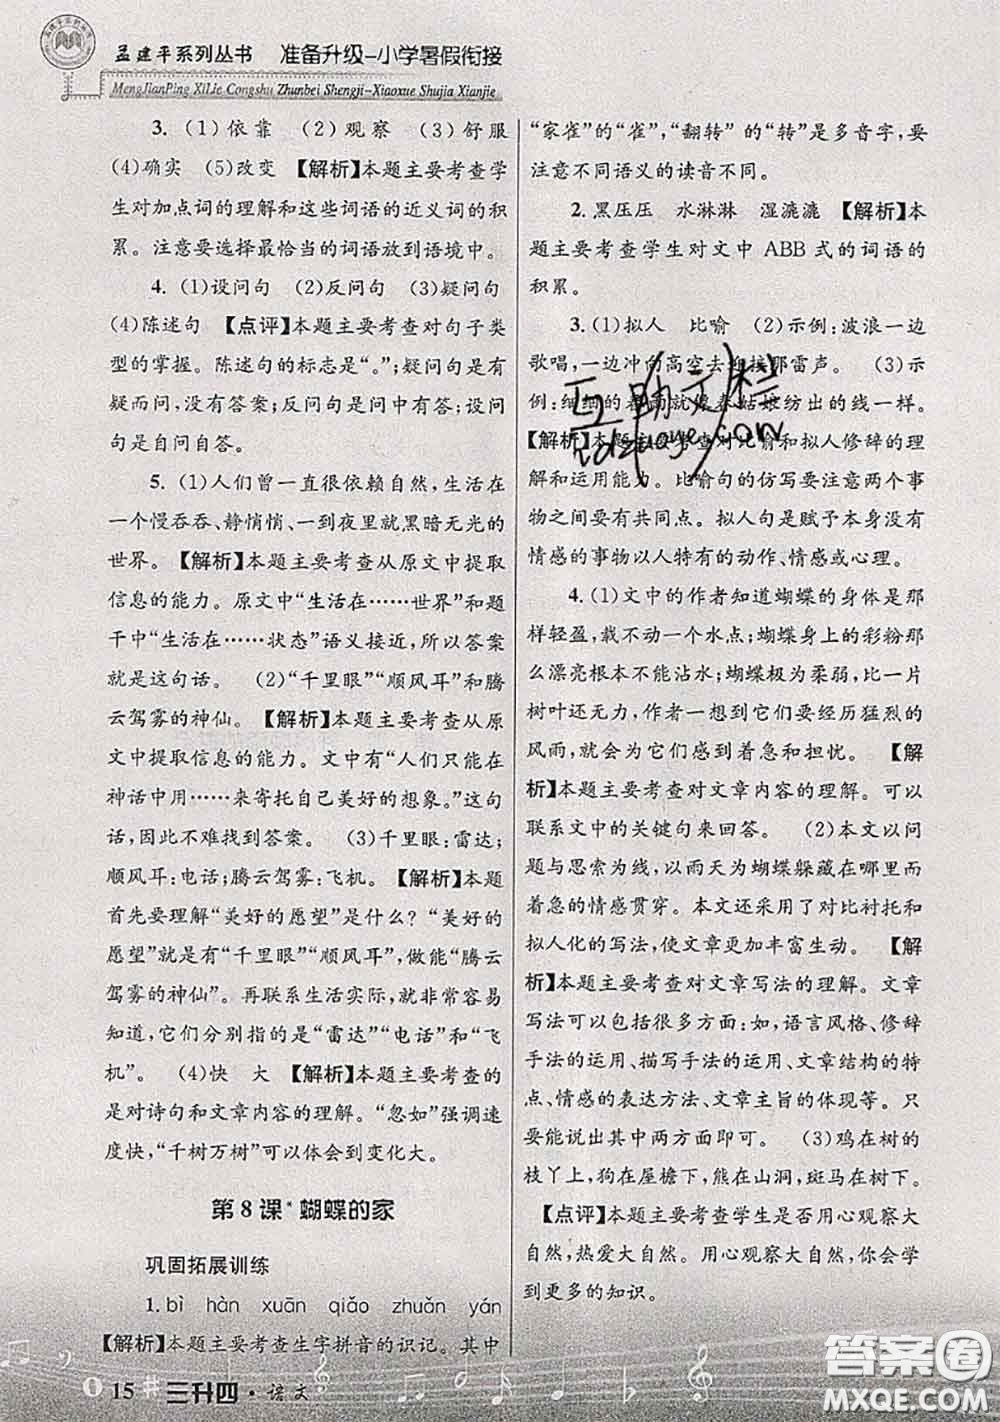 孟建平系列丛书 准备升级-小学暑假衔接
MengJianPing XiLie Congshu Zhunbei Shengji-Xiaoxue Shujia Xianjie
3. (1)依靠 (2)观察 (3)舒服
(4)确实 (5)改变 【解析】本题主要考查学
生对加点词的理解和这些词语的近义词的积
累。注意要选择最恰当的词语放到语境中。
4. (1)设问句 (2)反问句 (3)疑问句
(4)陈述句 【点评】本题主要考查对句子类
型的掌握。陈述句的标志是“。”;疑问句是有
疑而问,没有答案;反问句是问中有答;设问
句是自问自答。
5. (1)人们曾一直很依赖自然,生活在
一个慢吞吞、静悄悄、一到夜里就黑暗无光的
世界。 【解析】本题主要考查从原文中提取
信息的能力。原文中“生活在……世界”和题
干中“生活在……状态”语义接近,所以答案
就是这句话。 (2)“千里眼”“顺风耳”和腾
云驾雾的神仙。 【解析】本题主要考查从原
文中提取信息的能力。文中有“人们只能在
神话中用……来寄托自己美好的想象。”这句
话,因此不难找到答案。 (3)千里眼:雷达;
顺风耳:电话;腾云驾雾:飞机。 【解析】本题
首先要理解“美好的愿望”是什么?“美好的
愿望”就是有“千里眼”“顺风耳”,做能“腾云
驾雾的神仙”。再联系生活实际,就非常容易
知道,它们分别指的是“雷达”“电话”和“飞
机”。 (4)快 大 【解析】本题主要考查的
是对诗句和文章内容的理解。“忽如”强调速
度快,“千树万树”可以体会到变化大。
第8课* 蝴蝶的家
巩固拓展训练
1. bì hàn xuān qiǎo zhuǎn yán
【解析】本题主要考查生字拼音的识记。其中
“家雀”的“雀”,“翻转”的“转”是多音字,要
注意不同语义的读音不同。
2. 黑压压 水淋淋 湿漉漉 【解析】本
题主要考查学生对文中 ABB 式的词语的
积累。
3. (1)拟人 比喻 (2)示例:波浪一边
歌唱,一边冲向高空去迎接那雷声。 (3)示
例:细细的春雨就像春姑娘纺出的线一样。
【解析】本题主要考查对比喻和拟人修辞的理
解和运用能力。比喻句的仿写要注意两个事
物之间要有共同点。拟人句是赋予本身没有
情感的事物以人特有的动作、情感或心理。
4. (1)文中的作者知道蝴蝶的身体是那
样轻盈,载不动一个水点;蝴蝶身上的彩粉那
么漂亮根本不能沾水;蝴蝶是柔弱,比一片
树叶还无力,作者一想到它们要经历猛烈的
风雨,就会为它们感到着急和担忧。 【解
析】本题主要考查对文章内容的理解。可以
联系文中的关键句来回答。 (2)本文以问
题与思索为线,以雨天为蝴蝶躲藏在哪里而
着急的情感贯穿。本文还采用了对比衬托和
拟人化的写法,使文章更加丰富生动。 【解
析】本题主要考查对文章写法的理解。文章
写法可以包括很多方面:如,语言风格、修辞
手法的运用、描写手法的运用、文章结构的特
点、情感的表达方法、文章主旨的体现等。只
要能说出其中两方面即可。 (3)鸡在树的
枝丫上,狗在屋檐下,熊在山洞,斑马在树下。
【点评】本题主要考查学生是否用心观察大
自然,热爱大自然。用心观察大自然,你会学
到更多的知识。
15 三升四·语文
答案圈
MXQE.COM